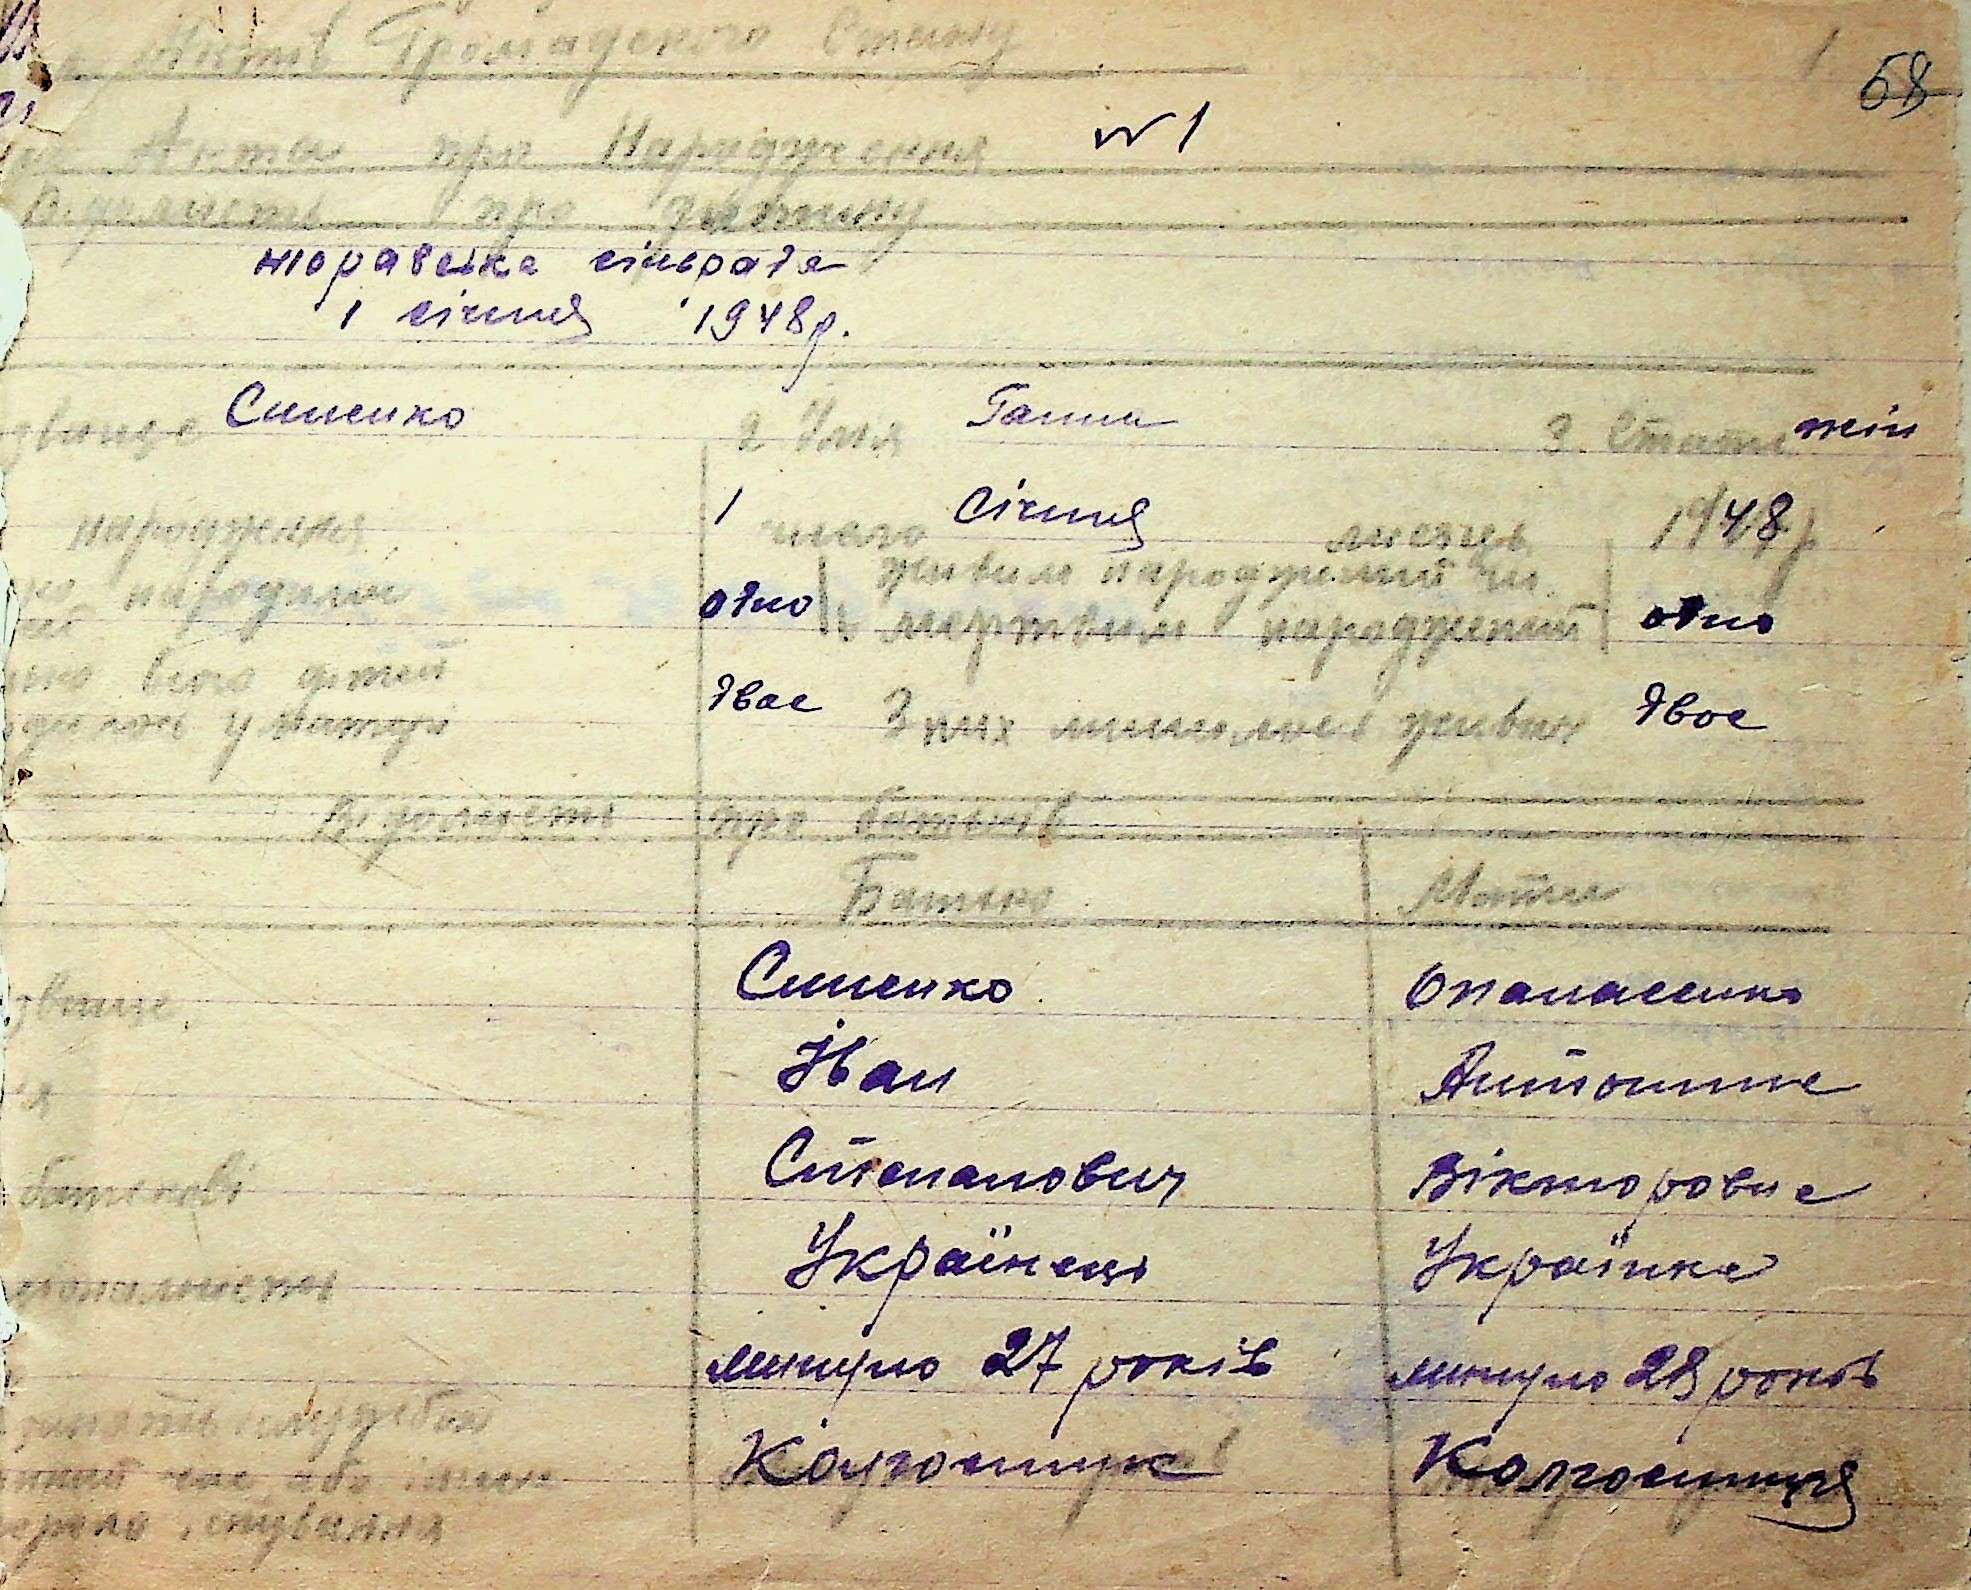 Актів Громадського Стану 1
68
Акти про Народження N 1
Відомість про дитину
сільрада
1 січня 1948 р.
звище Синенко 2 Імя Ганна 3. Стать жін
народження 1 число Січня місяць 1948 р
народилось одно живим народжений чи
мертвим народжений одно
його дітей
у матері двое З них лишилися живих двое
Відомость про батьків
Батько Мати
звище Синенко Опанасенко
Іван Антонина
батькові Степанович Вікторовна
Українець Українка
минуло 27 років минуло 28 років
службой
час або Колгоспник Колгоспниця